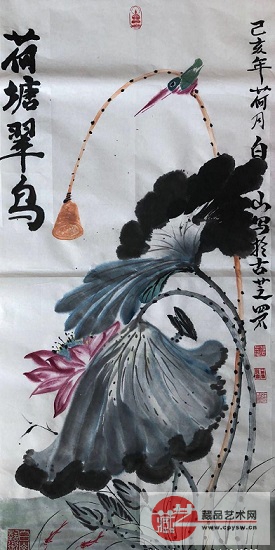 荷塘翠鸟
己亥年荷月白
山写於古芝罘
藏艺
藏品艺术网
www.cpysw.cn